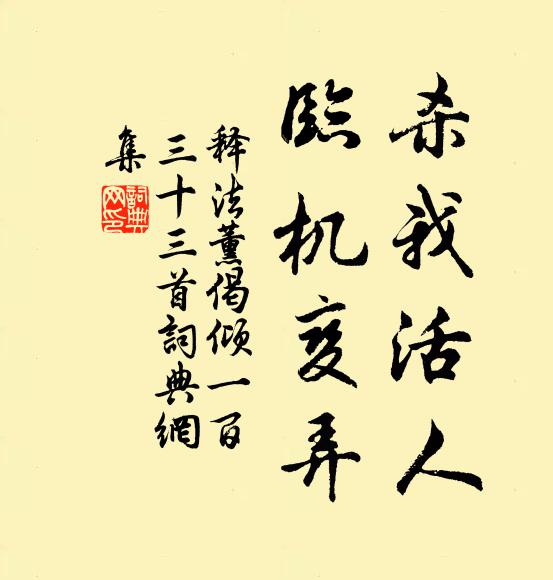 杀我活人
臨机变弄
释法薰偈倾一百
三十三首詞典網
集
詞典
网印